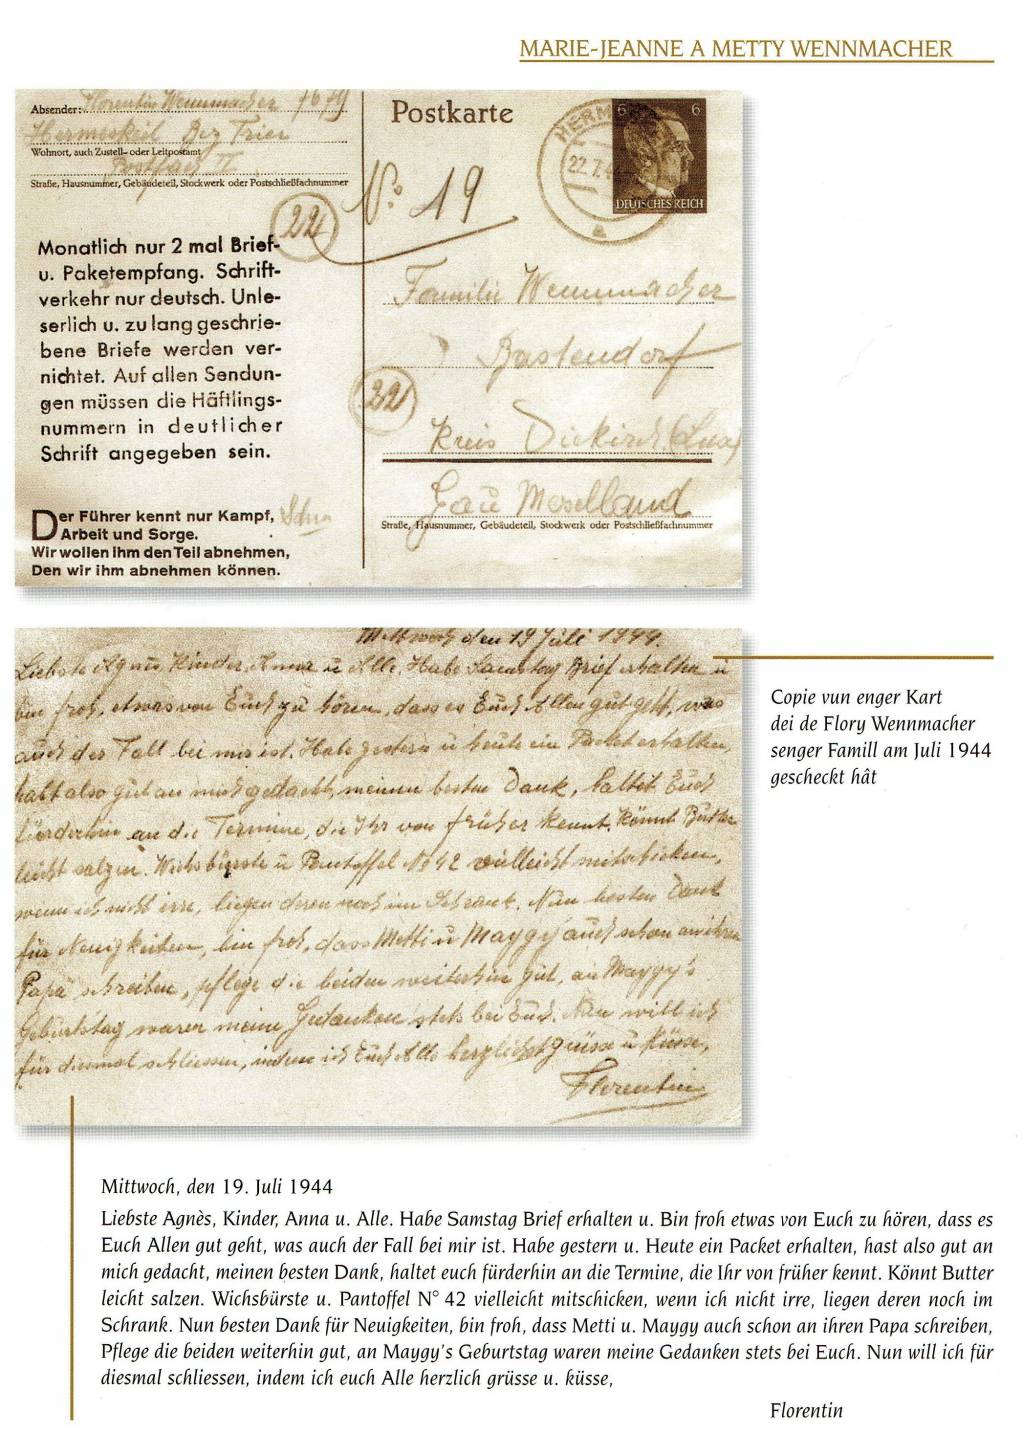 MARIE-JEANNE A METTY WENNMACHER
Absender: Florentin Wennmacher 7679
Hermeskeil Bez Trier
Wohnort, auch Zustell- oder Leitpostamt
Postfach II
Straße, Hausnummer, Gebäudeteil, Stockwerk oder Postschließfachnummer
Monatlich nur 2 mal Brief-
u. Paketempfang. Schrift-
verkehr nur deutsch. Unle-
serlich u. zu lang geschrie-
bene Briefe werden ver-
nichtet. Auf allen Sendun-
gen müssen die Häftlings-
nummern in deutlicher
Schrift angegeben sein.
Der Führer kennt nur Kampf,
Arbeit und Sorge.
Wir wollen ihm den Teil abnehmen,
Den wir ihm abnehmen können.
Postkarte
HERM
22.7.4
6 6
DEUTSCHES REICH
No. 19
(22)
Familie Wennmacher
Bastendorf
(22)
Kreis Diekirch (Lux)
Gau Moselland
Straße, Hausnummer, Gebäudeteil, Stockwerk oder Postschließfachnummer
Mittwoch den 19 Juli 1944.
Liebste Agnes, Kinder, Anna u Alle. Habe Samstag Brief erhalten u
bin froh, etwas von Euch zu hören, dass es Euch Allen gut geht, was
auch der Fall bei mir ist. Habe gestern u heute ein Packet erhalten,
hast also gut an mich gedacht, meinen besten Dank, haltet Euch
fürderhin an die Termine, die Ihr von früher kennt. Könnt Butter
leicht salzen. Wichsbürste u Pantoffel No 42 vielleicht mitschicken,
wenn ich nicht irre, liegen deren noch im Schrank. Nun besten Dank
für Neuigkeiten, bin froh, dass Metti u Maygy auch schon an ihren
Papa schreiben, pflege die beiden weiterhin gut, an Maygy's
Geburtstag waren meine Gedanken stets bei Euch. Nun will ich
für diesmal schliessen, indem ich Euch Alle herzlichst grüsse u küsse,
Florentin
Copie vun enger Kart
dei de Flory Wennmacher
senger Famill am Juli 1944
gescheckt hât
Mittwoch, den 19. Juli 1944
Liebste Agnès, Kinder, Anna u. Alle. Habe Samstag Brief erhalten u. Bin froh etwas von Euch zu hören, dass es
Euch Allen gut geht, was auch der Fall bei mir ist. Habe gestern u. Heute ein Packet erhalten, hast also gut an
mich gedacht, meinen besten Dank, haltet euch fürderhin an die Termine, die Ihr von früher kennt. Könnt Butter
leicht salzen. Wichsbürste u. Pantoffel N° 42 vielleicht mitschicken, wenn ich nicht irre, liegen deren noch im
Schrank. Nun besten Dank für Neuigkeiten, bin froh, dass Metti u. Maygy auch schon an ihren Papa schreiben,
Pflege die beiden weiterhin gut, an Maygy's Geburtstag waren meine Gedanken stets bei Euch. Nun will ich für
diesmal schliessen, indem ich euch Alle herzlich grüsse u. küsse,
Florentin